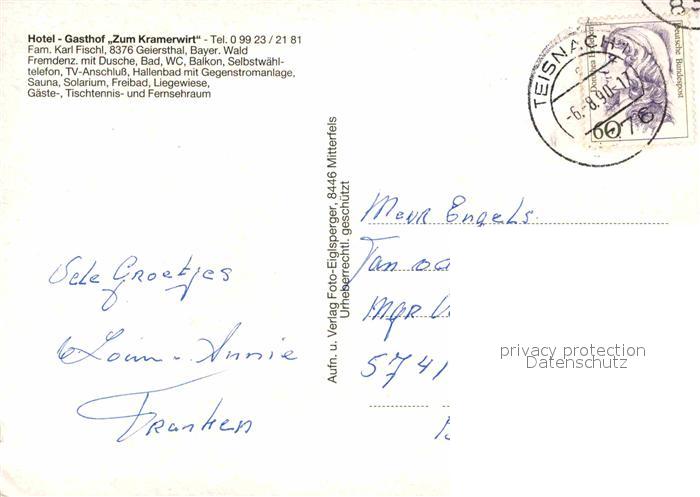 Hotel - Gasthof „Zum Kramerwirt" - Tel. 0 99 23 / 21 81
Fam. Karl Fischl, 8376 Geiersthal, Bayer. Wald
Fremdenz. mit Dusche, Bad, WC, Balkon, Selbstwähl-
telefon, TV-Anschluß, Hallenbad mit Gegenstromanlage,
Sauna, Solarium, Freibad, Liegewiese,
Gäste-, Tischtennis- und Fernsehraum
TEISNACH
-6.-8.90-17
Deutsche Bundespost
60
Aufn. u. Verlag Foto-Eiglsperger, 8446 Mitterfels
Urheberrechtl. geschützt
Vele Groetjes
Annie
Franken
Mevr Engels
Mgr
5741
privacy protection
Datenschutz